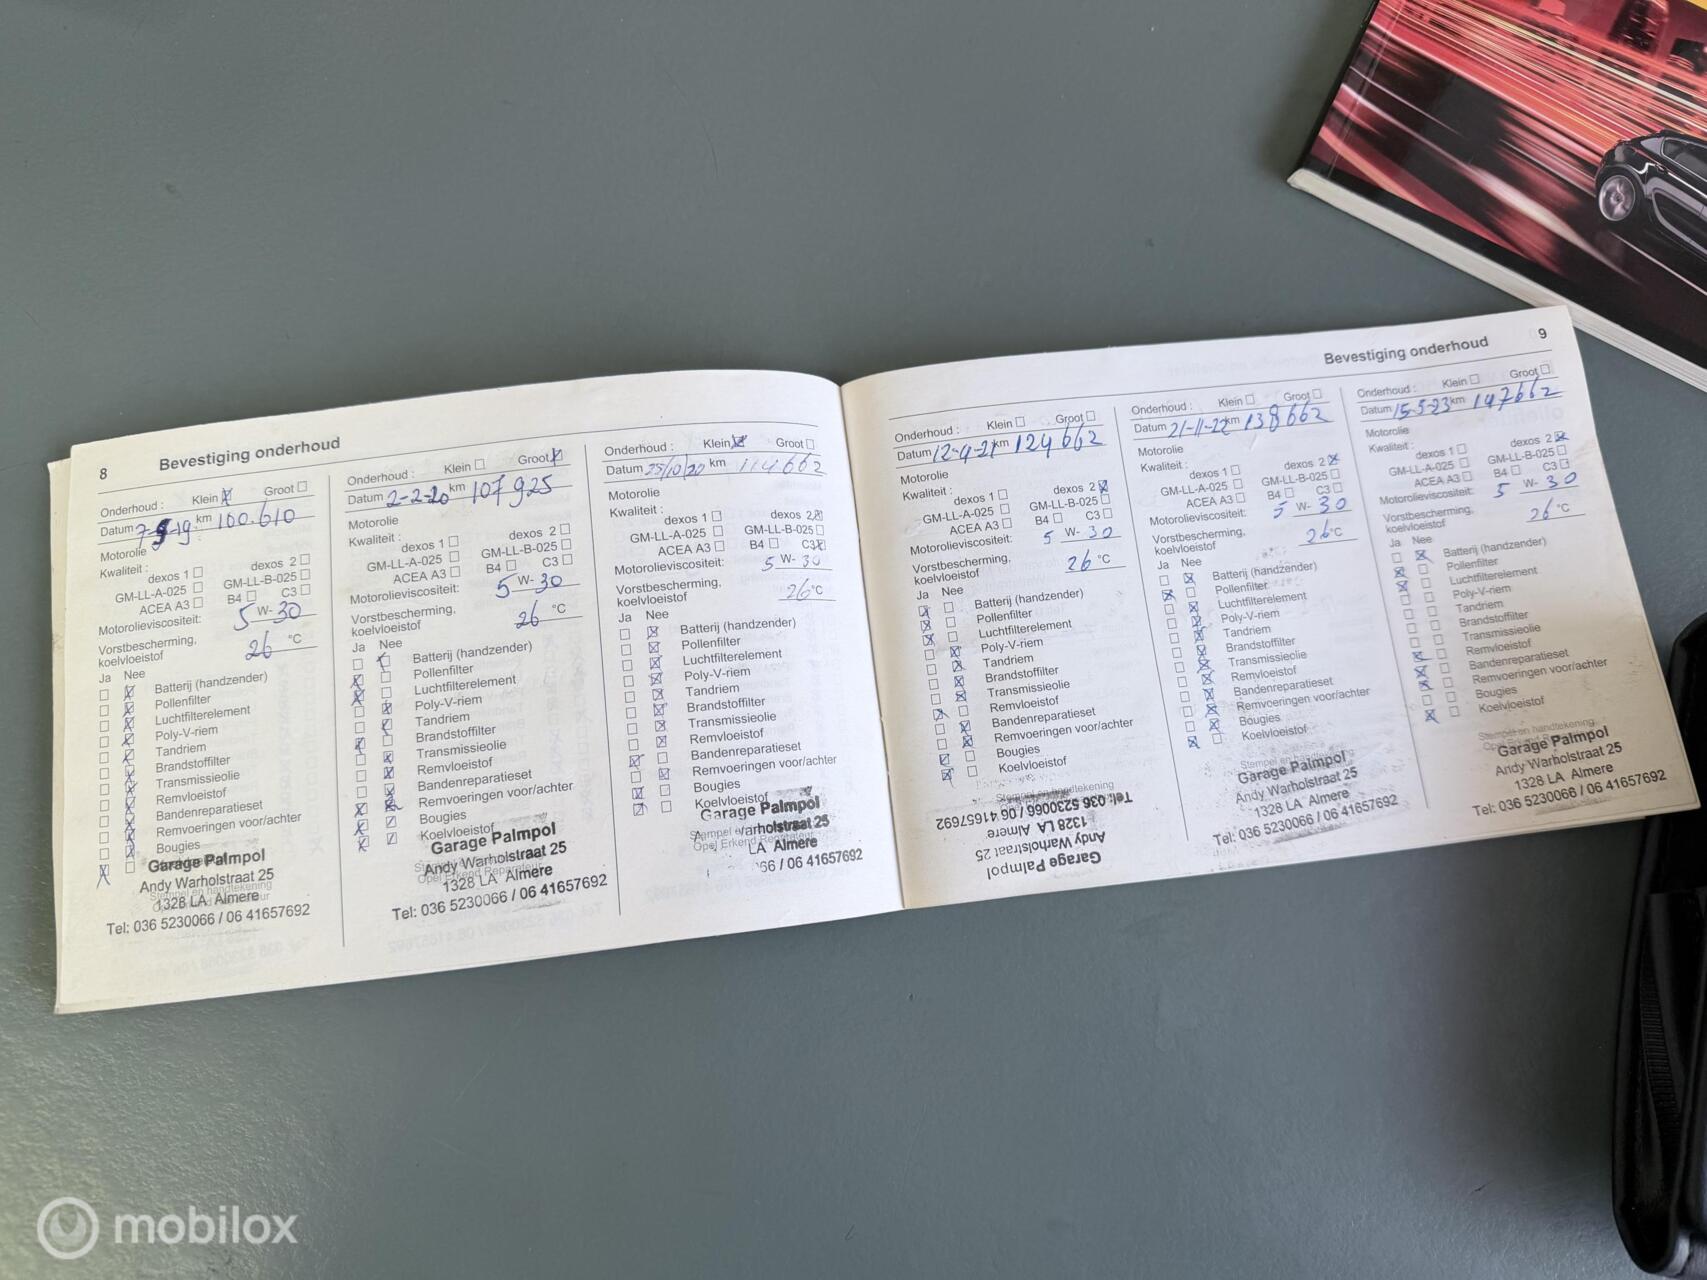 8 Bevestiging onderhoud
Onderhoud : Klein Groot
Datum 7-5-19 km 100.610
Motorolie
Kwaliteit :
dexos 1 dexos 2
GM-LL-A-025 GM-LL-B-025
ACEA A3 B4 C3
Motorolieviscositeit: 5 W- 30
Vorstbescherming,
koelvloeistof 26 °C
Ja Nee
Batterij (handzender)
Pollenfilter
Luchtfilterelement
Poly-V-riem
Tandriem
Brandstoffilter
Transmissieolie
Remvloeistof
Bandenreparatieset
Remvoeringen voor/achter
Bougies
Garage Palmpol
Andy Warholstraat 25
Stempel en handtekening
1328 LA Almere
Tel: 036 5230066 / 06 41657692
Onderhoud : Klein Groot
Datum 2-2-20 km 107925
Motorolie
Kwaliteit :
dexos 1 dexos 2
GM-LL-A-025 GM-LL-B-025
ACEA A3 B4 C3
Motorolieviscositeit: 5 W- 30
Vorstbescherming,
koelvloeistof 26 °C
Ja Nee
Batterij (handzender)
Pollenfilter
Luchtfilterelement
Poly-V-riem
Tandriem
Brandstoffilter
Transmissieolie
Remvloeistof
Bandenreparatieset
Remvoeringen voor/achter
Bougies
Koelvloeistof
Garage Palmpol
Andy Warholstraat 25
Opel Erkend Reparateur
1328 LA Almere
Tel: 036 5230066 / 06 41657692
Onderhoud : Klein Groot
Datum 25/10/20 km 114662
Motorolie
Kwaliteit :
dexos 1 dexos 2
GM-LL-A-025 GM-LL-B-025
ACEA A3 B4 C3
Motorolieviscositeit: 5 W- 30
Vorstbescherming,
koelvloeistof 26 °C
Ja Nee
Batterij (handzender)
Pollenfilter
Luchtfilterelement
Poly-V-riem
Tandriem
Brandstoffilter
Transmissieolie
Remvloeistof
Bandenreparatieset
Remvoeringen voor/achter
Bougies
Koelvloeistof
Garage Palmpol
A Warholstraat 25
Opel Erkend Reparateur
LA Almere
66 / 06 41657692
Bevestiging onderhoud 9
Onderhoud : Klein Groot
Datum 12-4-21 km 124662
Motorolie
Kwaliteit :
dexos 1 dexos 2
GM-LL-A-025 GM-LL-B-025
ACEA A3 B4 C3
Motorolieviscositeit: 5 W- 30
Vorstbescherming,
koelvloeistof 26 °C
Ja Nee
Batterij (handzender)
Pollenfilter
Luchtfilterelement
Poly-V-riem
Tandriem
Brandstoffilter
Transmissieolie
Remvloeistof
Bandenreparatieset
Remvoeringen voor/achter
Bougies
Koelvloeistof
Stempel en handtekening
Garage Palmpol
Andy Warholstraat 25
1328 LA Almere
Tel: 036 5230066 / 06 41657692
Onderhoud : Klein Groot
Datum 21-11-22 km 138662
Motorolie
Kwaliteit :
dexos 1 dexos 2
GM-LL-A-025 GM-LL-B-025
ACEA A3 B4 C3
Motorolieviscositeit: 5 W- 30
Vorstbescherming,
koelvloeistof 26 °C
Ja Nee
Batterij (handzender)
Pollenfilter
Luchtfilterelement
Poly-V-riem
Tandriem
Brandstoffilter
Transmissieolie
Remvloeistof
Bandenreparatieset
Remvoeringen voor/achter
Bougies
Koelvloeistof
Stempel en handtekening
Garage Palmpol
Andy Warholstraat 25
1328 LA Almere
Tel: 036 5230066 / 06 41657692
Onderhoud : Klein Groot
Datum 15-5-23 km 147662
Motorolie
Kwaliteit :
dexos 1 dexos 2
GM-LL-A-025 GM-LL-B-025
ACEA A3 B4 C3
Motorolieviscositeit: 5 W- 30
Vorstbescherming,
koelvloeistof 26 °C
Ja Nee
Batterij (handzender)
Pollenfilter
Luchtfilterelement
Poly-V-riem
Tandriem
Brandstoffilter
Transmissieolie
Remvloeistof
Bandenreparatieset
Remvoeringen voor/achter
Bougies
Koelvloeistof
Stempel en handtekening
Garage Palmpol
Andy Warholstraat 25
1328 LA Almere
Tel: 036 5230066 / 06 41657692
mobilox